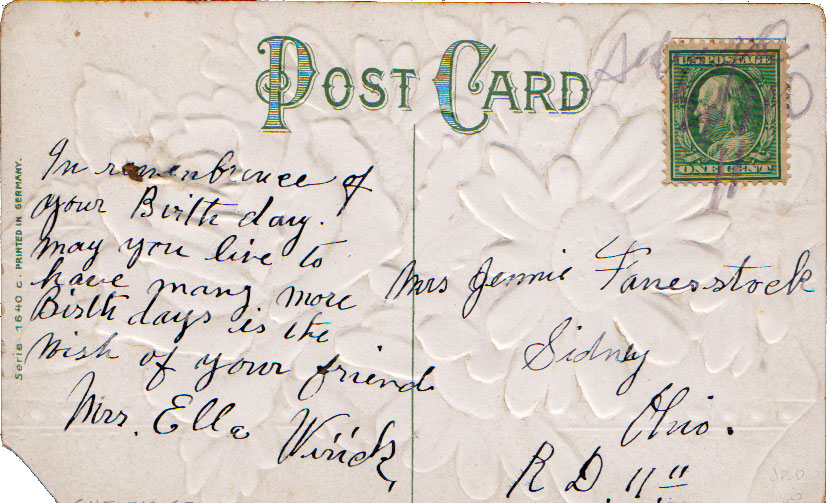 POST CARD
U.S. POSTAGE
ONE CENT
Serie 1640 C. PRINTED IN GERMANY.
In remenbrnce of
your Birth day.
may you live to
have many more
Birth days is the
wish of your friend
Mrs. Ella Wirick,
Mrs Jennie Fanesstock
Sidney
Ohio.
R D 11"
JBD